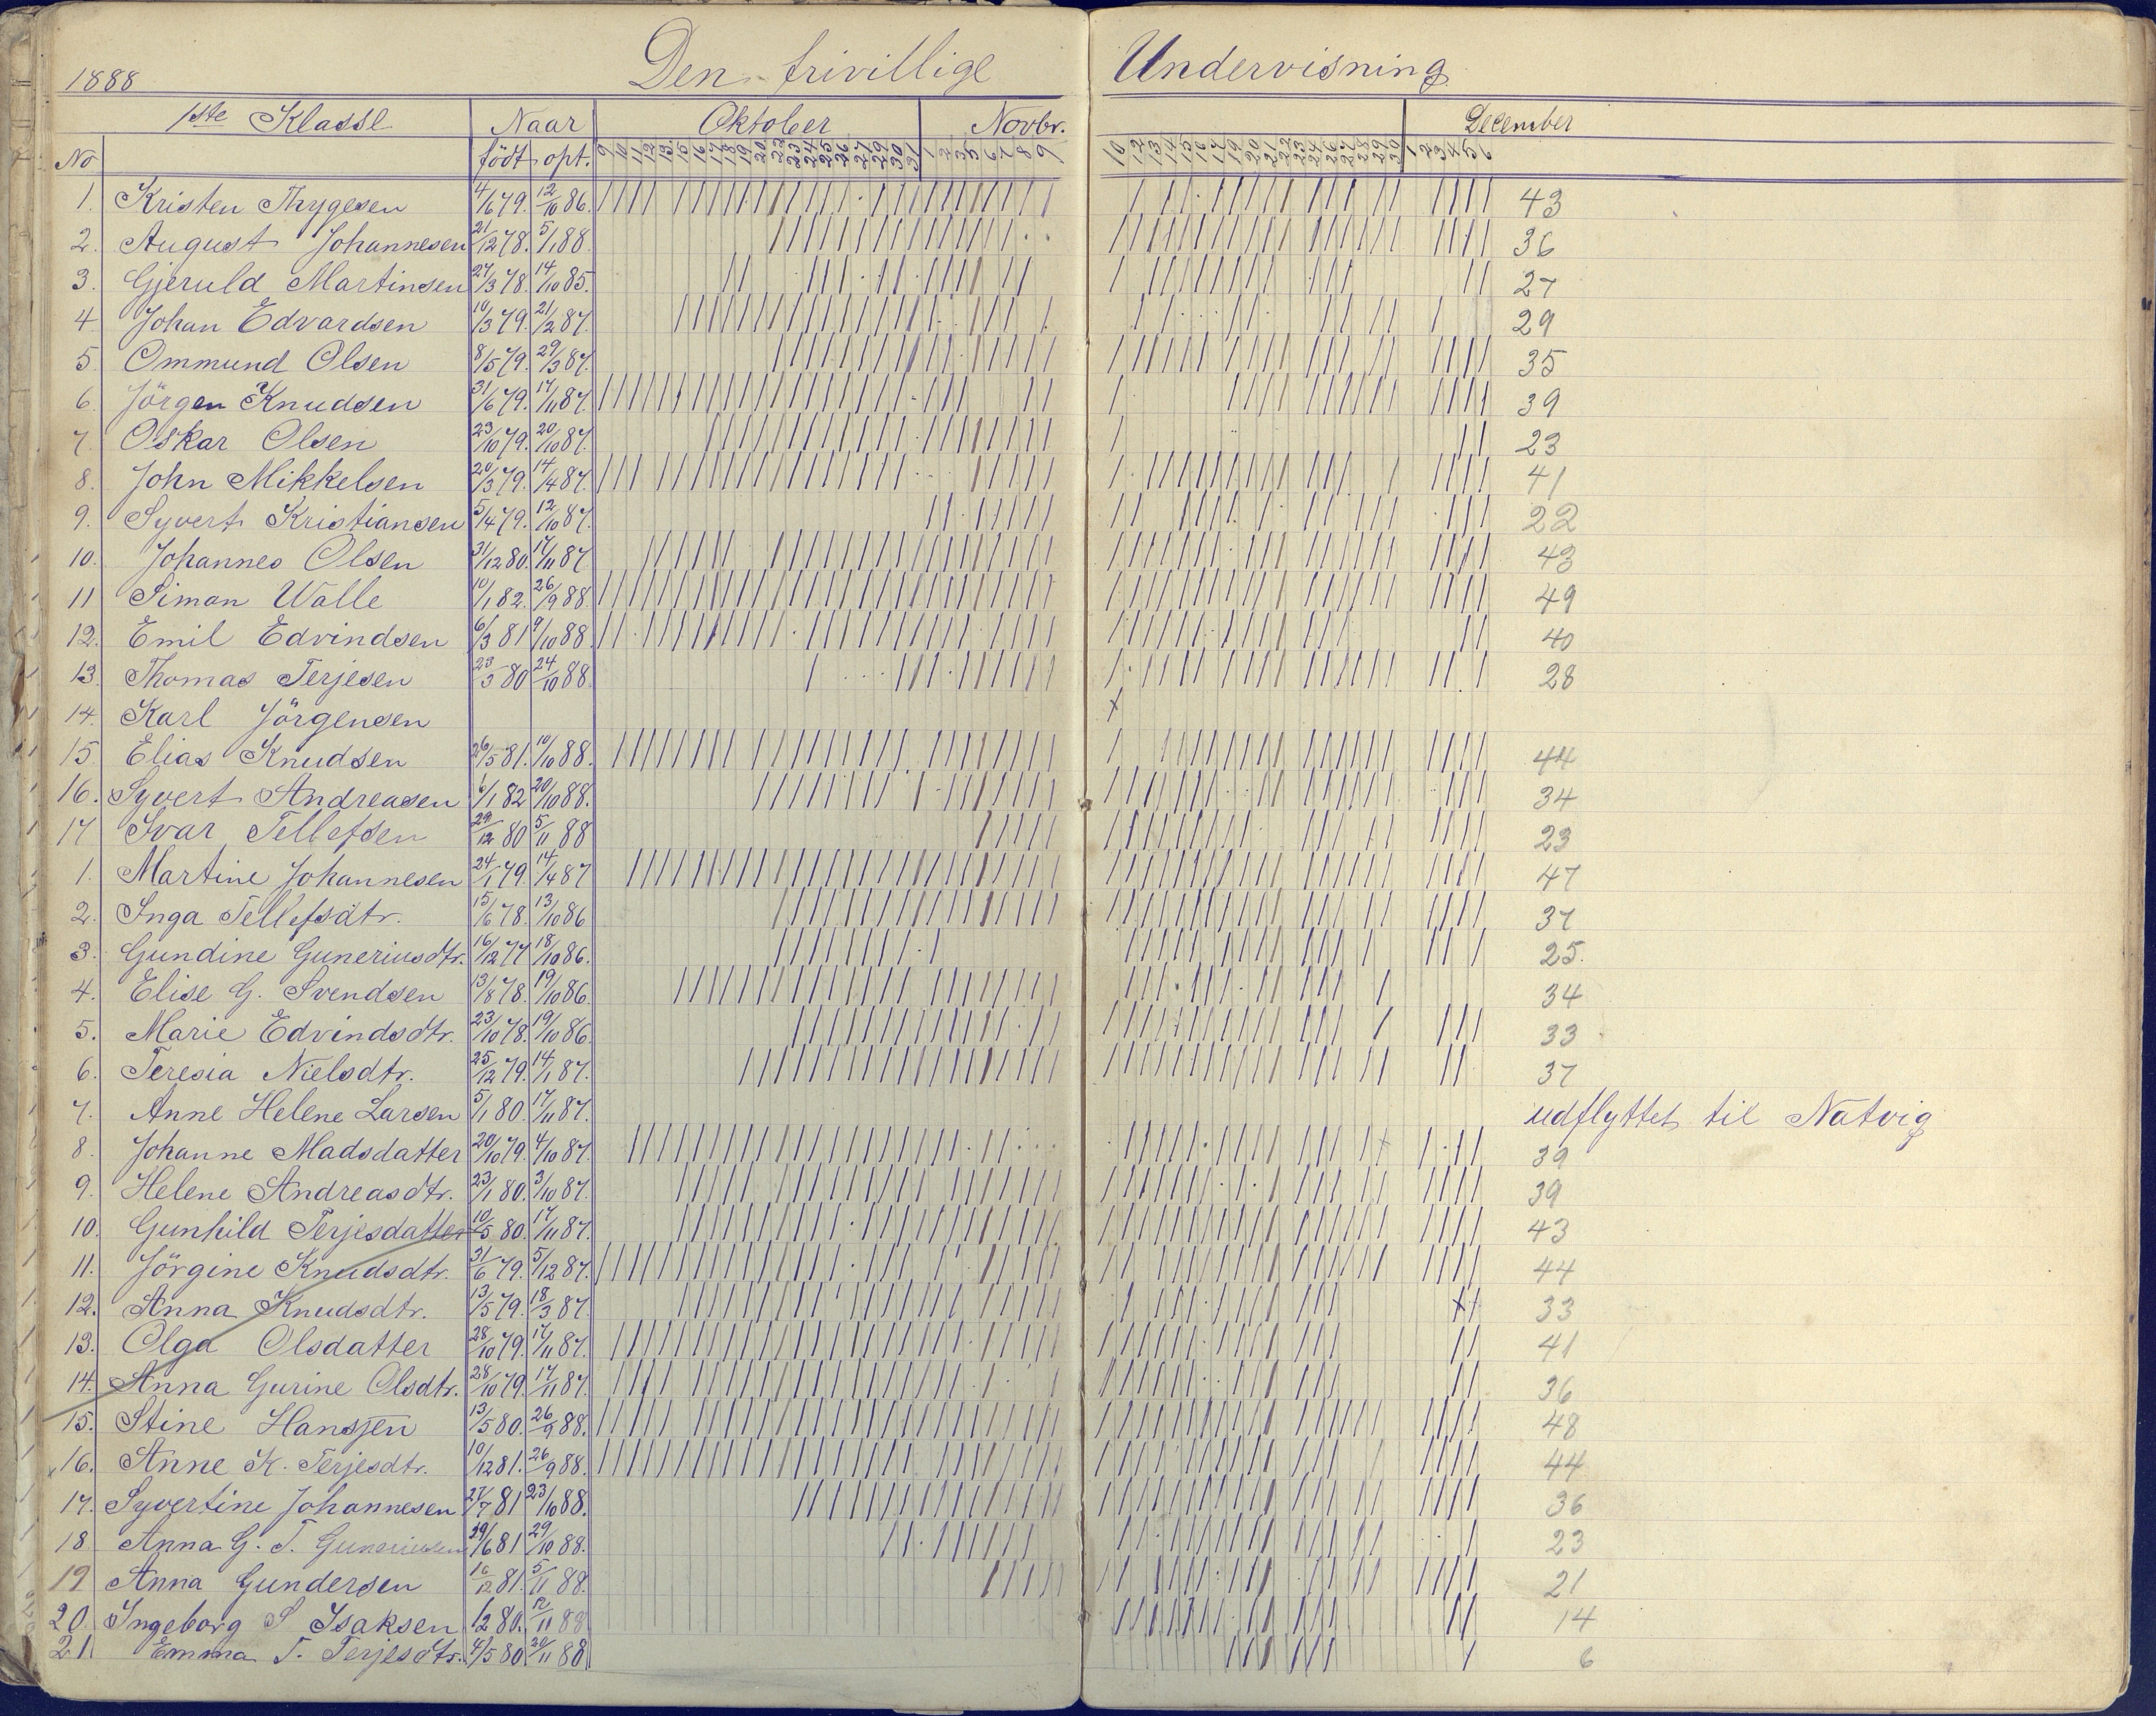 1888 Den frivillige Undervisning
1ste Klasse Naar Oktober Novbr. December
No födt opt. 9 10 11 12 13 15 16 17 18 19 20 22 23 24 25 26 27 29 30 31 1 2 3 5 6 7 8 9 10 12 13 14 15 16 17 19 20 21 22 23 24 26 27 28 29 30 1 2 3 4 5 6
1. Kristen Thygesen 4/6 79. 12/10 86. 43
2. August Johannesen 21/12 78. 5/1 88. 36
3. Gjeruld Martinsen 27/3 78. 14/10 85. 27
4 Johan Edvardsen 10/3 79. 21/2 87. 29
5. Ommund Olsen 8/5 79. 29/3 87. 35
6. Jörgen Knudsen 31/6 79. 17/11 87. 39
7. Oskar Olsen 23/10 79. 20/10 87. 23
8. John Mikkelsen 20/3 79. 14/4 87. 41
9. Syvert Kristiansen 5/4 79. 12/10 87. 22
10. Johannes Olsen 31/12 80. 17/11 87. 43
11 Simon Walle 10/1 82. 26/9 88. 49
12. Emil Edvindsen 6/3 81 9/10 88. 40
13. Thomas Terjesen 23/3 80 24/10 88. 28
14. Karl Jörgensen x
15. Elias Knudsen 26/5 81. 10/10 88. 44
16. Syvert Andreasen 6/1 82 20/10 88. 34
17 Ivar Tellefsen 29/12 80 5/11 88 23
1. Martine Johannesen 24/1 79. 14/4 87 47
2. Inga Tellefsdtr. 15/6 78. 13/10 86 37
3. Gundine Guneriusdtr. 16/12 77 18/10 86. 25.
4. Elise G. Svendsen 13/8 78. 19/10 86. 34
5. Marie Edvindsdtr. 23/10 78. 19/10 86. 33
6. Teresia Nielsdtr. 25/12 79. 14/1 87. 37
7. Anne Helene Larsen 5/1 80. 17/11 87. udflyttet til Natvig
8. Johanne Madsdatter 20/10 79. 4/10 87. 39
9. Helene Andreasdtr. 23/1 80. 3/10 87. 39
10. Gunhild Terjesdatter 10/5 80. 17/11 87. 43
11. Jörgine Knudsdtr. 31/6 79. 5/12 87. 44
12. Anna Knudsdtr. 13/5 79. 18/3 87. 33
13. Olga Olsdatter 28/10 79. 17/11 87. 41
14. Anna Gurine Olsdtr. 28/10 79. 17/11 87. 36
15. Stine Hansen 13/5 80. 26/9 88. 48
x 16. Anne K. Terjesdtr. 10/12 81. 26/9 88. 44
17. Syvertine Johannesen 27/7 81 23/10 88. 36
18 Anna G. T. Guneriusen 6 81 29/10 88. 23
19 Anna Gundersen 16/12 81. 5/11 88. 21
20. Ingeborg S Isaksen 12 80. 12/11 88 14
21. Emma T. Terjesdtr. 4/5 80 20/11 88 6